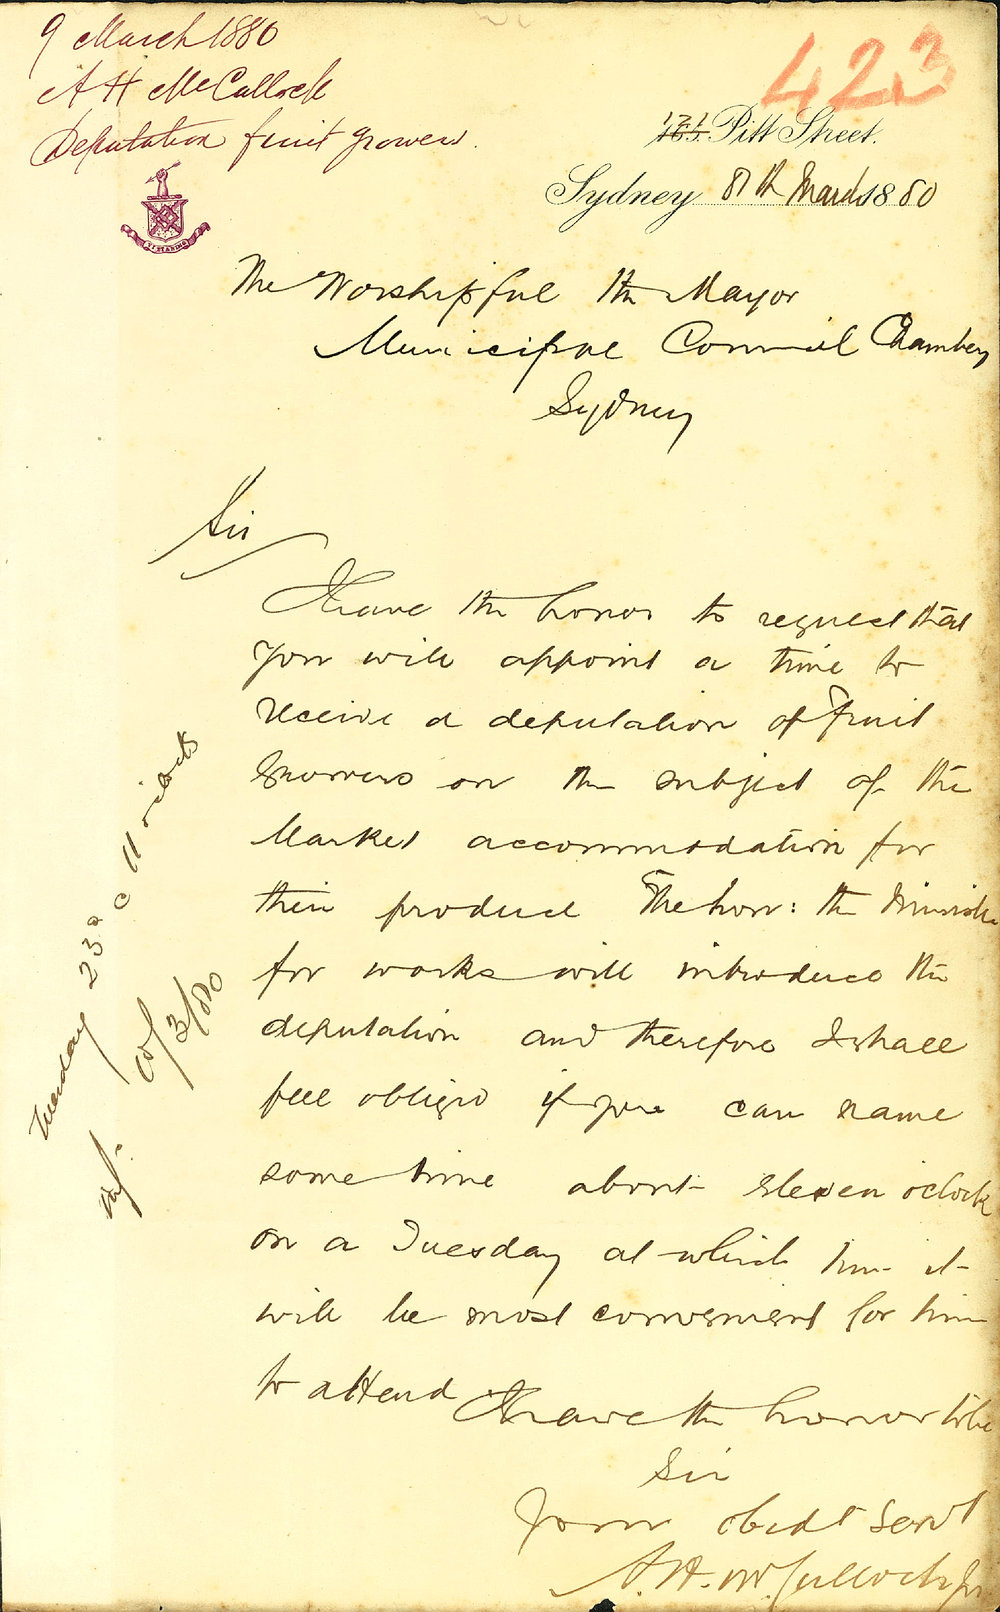 9 March 1880
A H McCulloch
Deputation fruit growers.
423
121
165 Pitt Street.
Sydney 8th March 1880
The Worshipful the Mayor
Municipal Council Chambers
Sydney
Sir
I have the honor to request that
you will appoint a time to
receive a deputation of Fruit
Growers on the subject of the
Market accommodation for
their produce The hon: the Minister
for works will introduce the
deputation and therefore I shall
feel obliged if you can name
some time about eleven oclock
on a Tuesday at which time it
will be most convenient for him
to attend
I have the honor to be
Sir
Your obedt Servt
A. H. McCulloch Jr
Tuesday 23d 11 oclock
/3/80